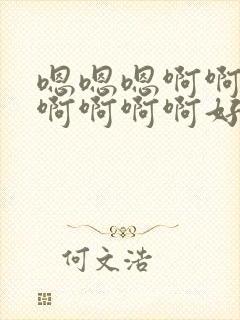 嗯嗯嗯啊啊
啊啊啊啊好
何文浩